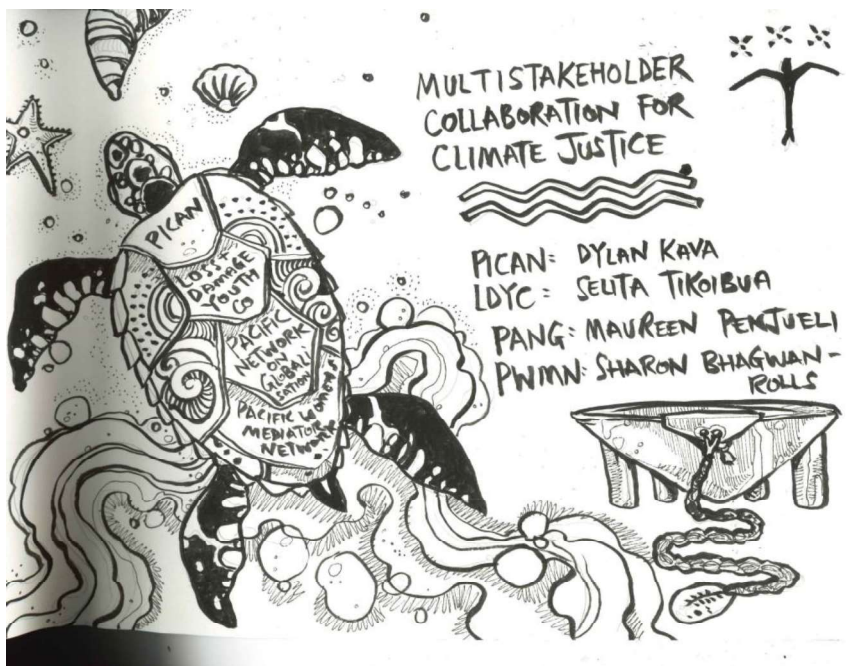 MULTISTAKEHOLDER
COLLABORATION FOR
CLIMATE JUSTICE
PICAN: DYLAN KAVA
LDYC: SELITA TIKOIBUA
PANG: MAUREEN PENJUELI
PWMN: SHARON BHAGWAN-
ROLLS
PICAN
LOSS +
DAMAGE
YOUTH
CO
PACIFIC
NETWORK
ON
GLOBALI
SATION
PACIFIC WOMENS
MEDIATOR
NETWORK